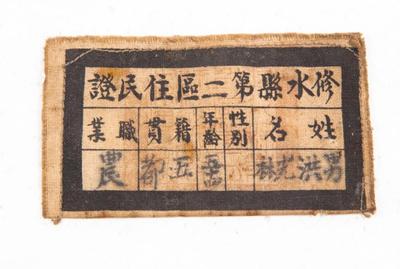 修水縣第二區住民證
姓名 性別 年齡 籍貫 職業
男洪 林 五都 農